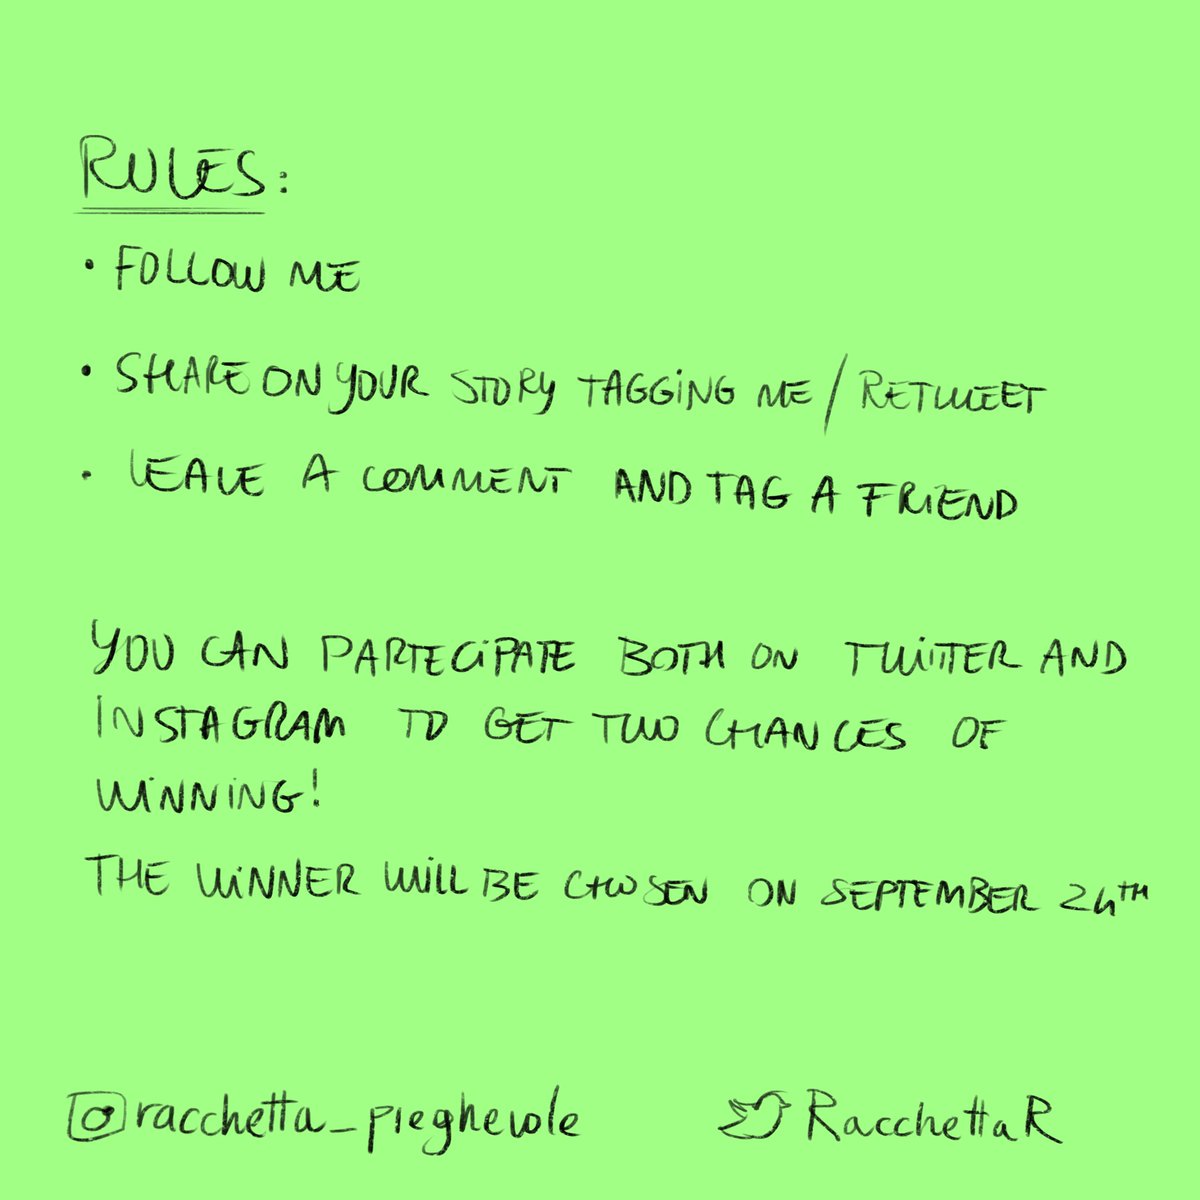 RULES:
• FOLLOW ME
• SHARE ON YOUR STORY TAGGING ME / RETWEET
• LEAVE A COMMENT AND TAG A FRIEND
YOU CAN PARTECIPATE BOTH ON TWITTER AND
INSTAGRAM TO GET TWO CHANCES OF
WINNING!
THE WINNER WILL BE CHOSEN ON SEPTEMBER 24TH
racchetta_pieghevole RacchettaR